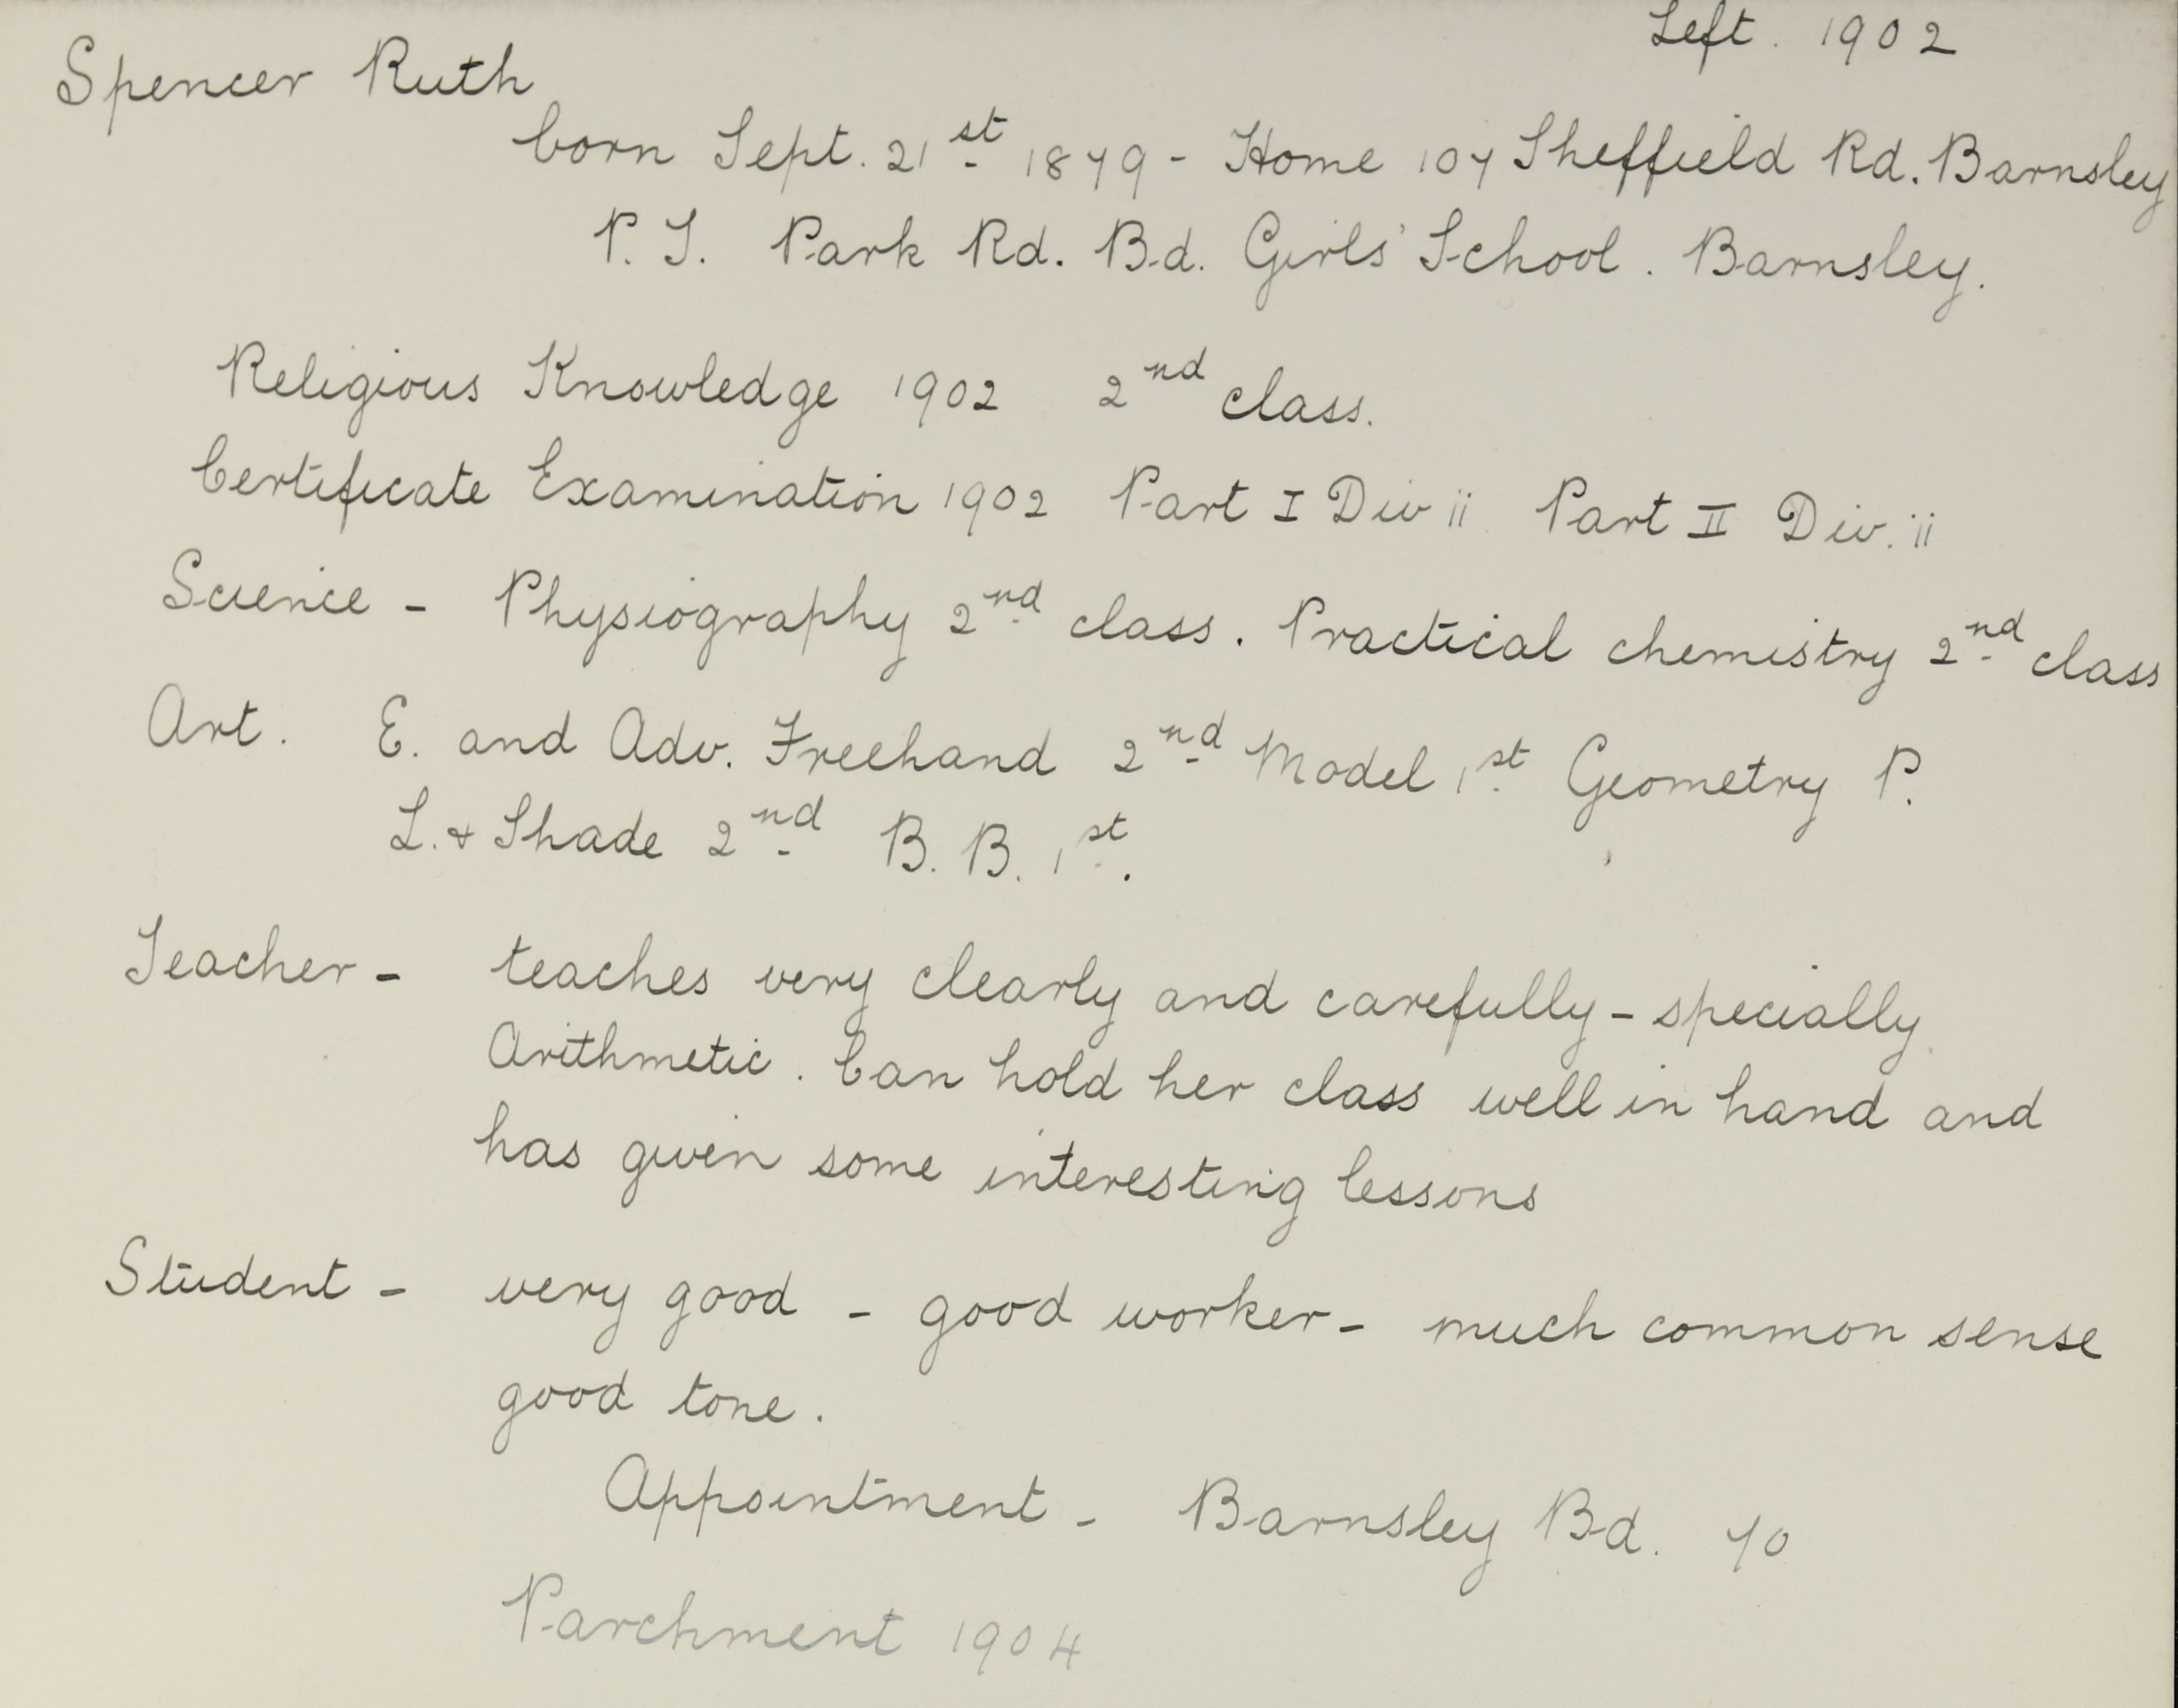 Left. 1902
Spencer Ruth
born Sept. 21st 1879 - Home 107 Sheffield Rd. Barnsley
P. T. Park Rd. Bd. Girls' School. Barnsley.
Religious Knowledge 1902 2nd class.
Certificate Examination 1902 Part I Div ii Part II Div. ii
Science - Physiography 2nd class. Practical chemistry 2nd class
Art. E. and Adv. Freehand 2nd Model 1st Geometry P.
L. & Shade 2nd B. B. 1st.
Teacher - teaches very clearly and carefully - specially
Arithmetic. Can hold her class well in hand and
has given some interesting lessons
Student - very good - good worker - much common sense
good tone.
Appointment - Barnsley Bd. 70
Parchment 1904